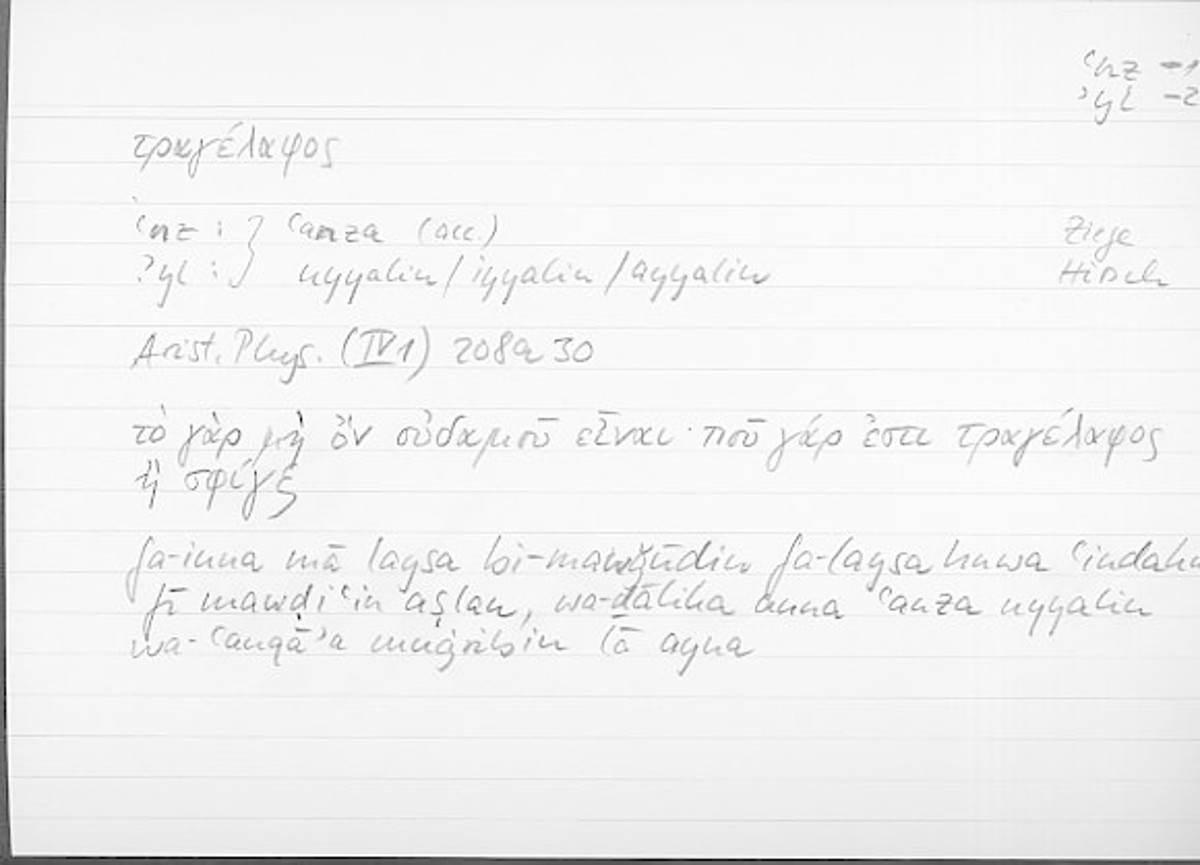 ʿnz -1
ʾyl -2
τραγέλαφος
ʿnz : } ʿanza (acc.) Ziege
ʾyl : } uyyalin / iyyalin / ayyalin Hirsch
Arist. Phys. (IV 1) 208a 30
τὸ γὰρ μὴ ὂν οὐδαμοῦ εἶναι · ποῦ γάρ ἐστι τραγέλαφος
ἢ σφίγξ
fa-inna mā laysa bi-mawǧūdin fa-laysa huwa ʿindahu
fī mawḍiʿin aṣlan, wa-ḏālika anna ʿanza uyyalin
wa-ʿanqāʾa muġribin lā ayna